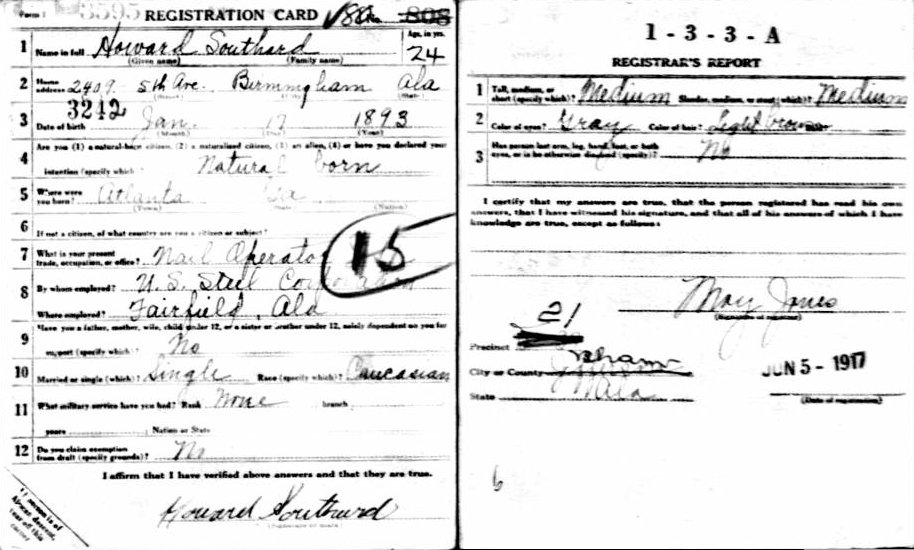 Form 1 3595 REGISTRATION CARD No. 808
1 Name in full Howard Southard Age, in yrs. 24
(Given name) (Family name)
2 Home address 2409 5th Ave. Birmingham Ala
3242
3 Date of birth Jan. 17 1893
(Month) (Day) (Year)
4 Are you (1) a natural-born citizen, (2) a naturalized citizen, (3) an alien, (4) or have you declared your
intention (specify which)? Natural born
5 Where were you born? Atlanta Ga
(Town) (State) (Nation)
6 If not a citizen, of what country are you a citizen or subject?
7 What is your present trade, occupation, or office? Nail Operator 15
8 By whom employed? U.S. Steel Corporation
Where employed? Fairfield, Ala
9 Have you a father, mother, wife, child under 12, or a sister or brother under 12, solely dependent on you for
support (specify which)? No
10 Married or single (which)? Single Race (specify which)? Caucasian
11 What military service have you had? Rank None branch
years Nation or State
12 Do you claim exemption from draft (specify grounds)? No
I affirm that I have verified above answers and that they are true.
Howard Southard
If person is of
African descent,
tear off this
corner
1-3-3-A
REGISTRAR'S REPORT
1 Tall, medium, or short (specify which)? Medium Slender, medium, or stout (which)? Medium
2 Color of eyes? Gray Color of hair? Light brown
3 Has person lost arm, leg, hand, foot, or both eyes, or is he otherwise disabled (specify)? No
I certify that my answers are true, that the person registered has read his own
answers, that I have witnessed his signature, and that all of his answers of which I have
knowledge are true, except as follows:
May Jones
(Signature of registrar)
21
Precinct
City or County
State Ala
JUN 5 - 1917
(Date of registration)
6